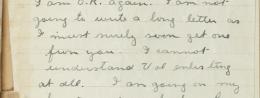 I am O.K. again. I am not
going to write a long letter as
I must surely soon get one
from you. I cannot
understand Val enlisting
at all. I am going on my